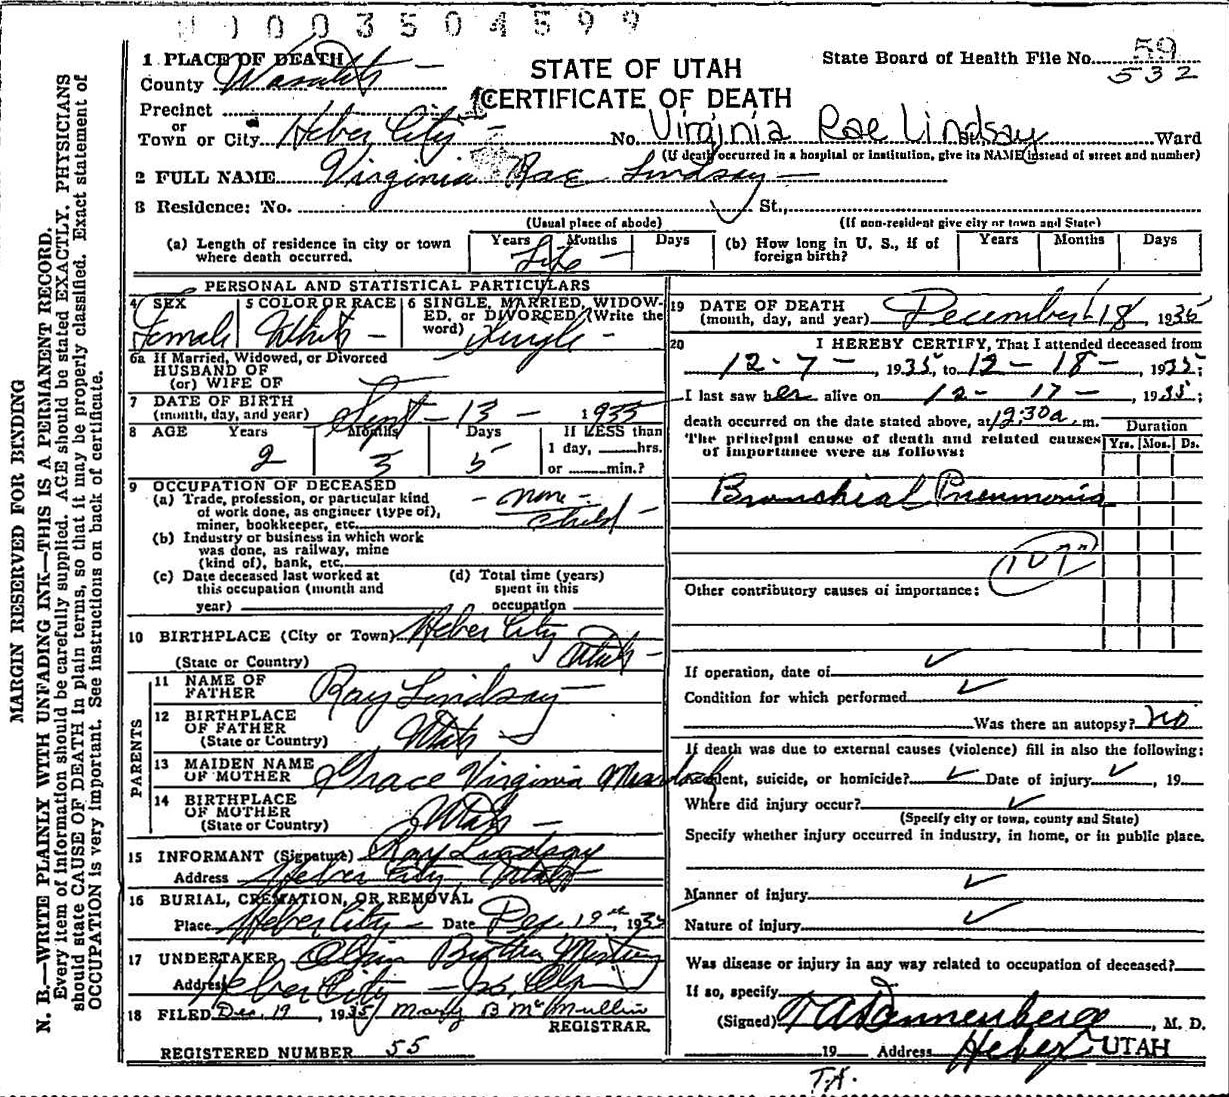 0003504599
1 PLACE OF DEATH
County Wasatch
STATE OF UTAH
CERTIFICATE OF DEATH
State Board of Health File No. 59
532
Precinct
or
Town or City Heber City No. Virginia Rae Lindsay St., Ward
(If death occurred in a hospital or institution, give its NAME instead of street and number)
2 FULL NAME Virginia Rae Lindsay
3 Residence: No. St.,
(Usual place of abode) (If non-resident give city or town and State)
(a) Length of residence in city or town where death occurred. Years Months Days Life
(b) How long in U. S., if of foreign birth? Years Months Days
PERSONAL AND STATISTICAL PARTICULARS
4 SEX Female
5 COLOR OR RACE White
6 SINGLE, MARRIED, WIDOWED, or DIVORCED (Write the word) Single
6a If Married, Widowed, or Divorced
HUSBAND OF
(or) WIFE OF
7 DATE OF BIRTH
(month, day, and year) Sept - 13 - 1933
8 AGE Years Months Days If LESS than
2 3 5 1 day, hrs.
or min.?
9 OCCUPATION OF DECEASED
(a) Trade, profession, or particular kind of work done, as engineer (type of), miner, bookkeeper, etc. - none - child
(b) Industry or business in which work was done, as railway, mine (kind of), bank, etc.
(c) Date deceased last worked at this occupation (month and year)
(d) Total time (years) spent in this occupation
10 BIRTHPLACE (City or Town) Heber City
(State or Country) Utah
PARENTS
11 NAME OF FATHER Ray Lindsay
12 BIRTHPLACE OF FATHER
(State or Country) Utah
13 MAIDEN NAME OF MOTHER Grace Virginia Murdock
14 BIRTHPLACE OF MOTHER
(State or Country) Utah
15 INFORMANT (Signature) Ray Lindsay
Address Heber City, Utah
16 BURIAL, CREMATION, OR REMOVAL
Place Heber City Date Dec 19th, 1935
17 UNDERTAKER Olpin Brothers
Address Heber City
18 FILED Dec. 19, 1935 Mary B McMullin
REGISTRAR.
REGISTERED NUMBER 55
19 DATE OF DEATH
(month, day, and year) December 18, 1935
20 I HEREBY CERTIFY, That I attended deceased from
12 - 7 -, 1935, to 12 - 18 -, 1935;
I last saw her alive on 12 - 17 -, 1935;
death occurred on the date stated above, at 12:30 a. m.
The principal cause of death and related causes of importance were as follows:
Duration
Yrs. Mos. Ds.
Bronchial Pneumonia
107
Other contributory causes of importance:
If operation, date of
Condition for which performed
Was there an autopsy? no
If death was due to external causes (violence) fill in also the following:
Accident, suicide, or homicide? Date of injury, 19
Where did injury occur?
(Specify city or town, county and State)
Specify whether injury occurred in industry, in home, or in public place.
Manner of injury
Nature of injury
Was disease or injury in any way related to occupation of deceased?
If so, specify
(Signed) Dannenberg, M. D.
19 Address Heber UTAH
MARGIN RESERVED FOR BINDING
N. B.—WRITE PLAINLY WITH UNFADING INK—THIS IS A PERMANENT RECORD.
Every item of information should be carefully supplied. AGE should be stated EXACTLY. PHYSICIANS
should state CAUSE OF DEATH in plain terms, so that it may be properly classified. Exact statement of
OCCUPATION is very important. See instructions on back of certificate.